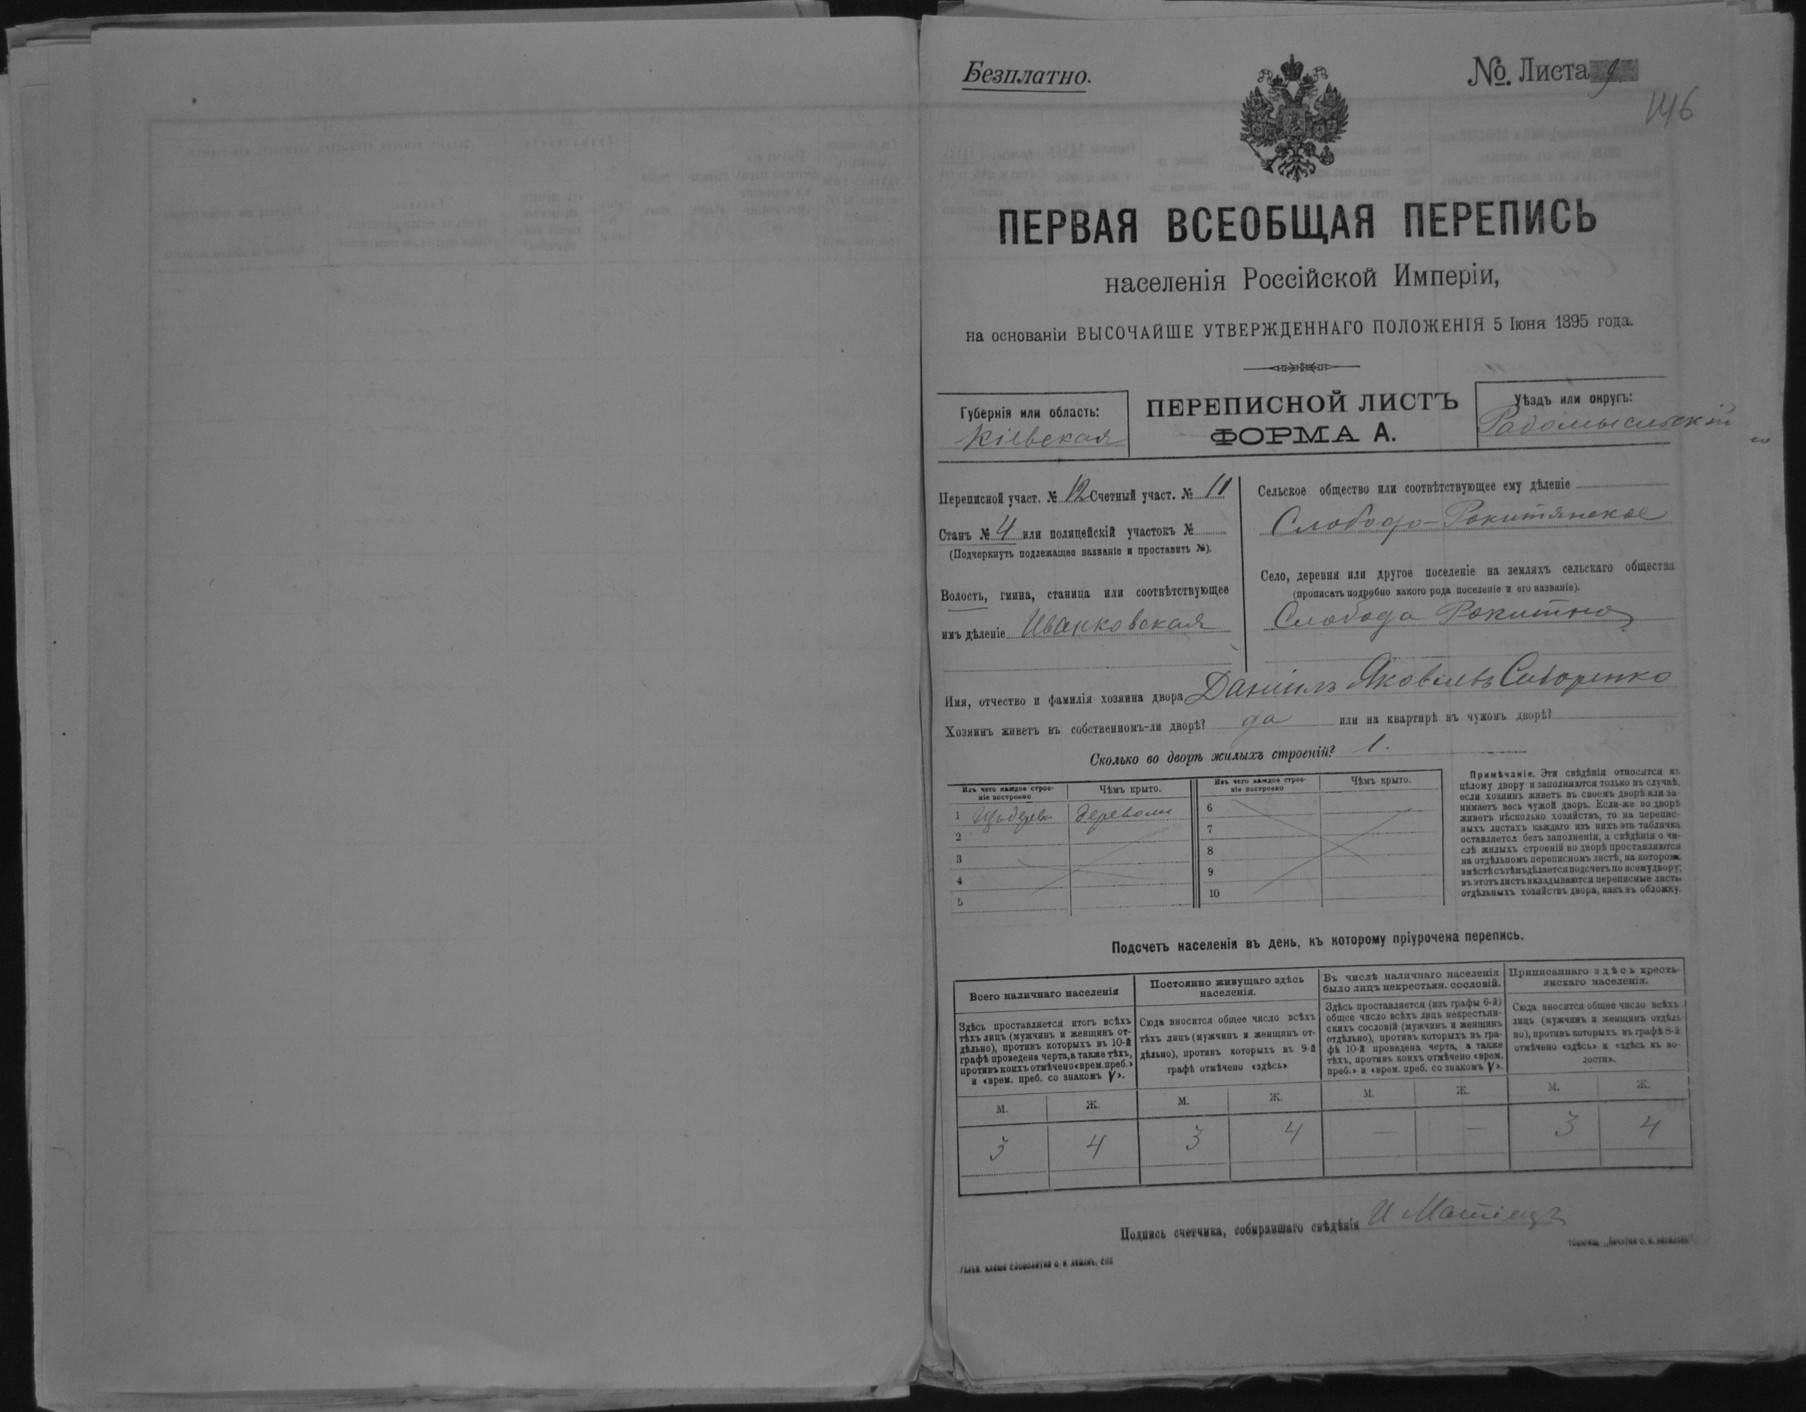 Безплатно.
№ Листа 9
146
ПЕРВАЯ ВСЕОБЩАЯ ПЕРЕПИСЬ
населенія Россійской Имперіи,
на основаніи ВЫСОЧАЙШЕ УТВЕРЖДЕННАГО ПОЛОЖЕНІЯ 5 Іюня 1895 года.
Губернія или область:
Кіевская
ПЕРЕПИСНОЙ ЛИСТЪ
ФОРМА А.
Уѣздъ или округъ:
Радомысльскій
Переписной участ. № 12 Счетный участ. № 11
Станъ № 4 или полицейскій участокъ №
(Подчеркнуть подлежащее названіе и проставить №).
Волость, гмина, станица или соотвѣтствующее
имъ дѣленіе Иванковская
Сельское общество или соотвѣтствующее ему дѣленіе
Слободо-Рокитянское
Село, деревня или другое поселеніе на земляхъ сельскаго общества
(прописать подробно какого рода поселеніе и его названіе).
Слобода Рокитна
Имя, отчество и фамилія хозяина двора Даніилъ Яковлевъ
Хозяинъ живетъ въ собственномъ-ли дворѣ? да или на квартирѣ въ чужомъ дворѣ?
Сколько во дворѣ жилыхъ строеній? 1.
Изъ чего каждое строе-
ніе построено
Чѣмъ крыто.
Изъ чего каждое строе-
ніе построено
Чѣмъ крыто.
1 Изъ дерева деревом
2
3
4
5
6
7
8
9
10
Примѣчаніе. Эти свѣдѣнія относятся къ
цѣлому двору и заполняются только въ случаѣ,
если хозяинъ живетъ въ своемъ дворѣ или за-
нимаетъ весь чужой дворъ. Если-же во дворѣ
живетъ нѣсколько хозяйствъ, то на перепис-
ныхъ листахъ каждаго изъ нихъ эта табличка
оставляется безъ заполненія, а свѣдѣнія о чи-
слѣ жилыхъ строеній во дворѣ проставляются
на отдѣльномъ переписномъ листѣ, на которомъ
вмѣстѣ съ тѣмъ дѣлается подсчетъ по всему двору;
въ этотъ листъ вкладываются переписные листы
отдѣльныхъ хозяйствъ двора, какъ въ обложку.
Подсчетъ населенія въ день, къ которому пріурочена перепись.
Всего наличнаго населенія
Постоянно живущаго здѣсь
населенія.
Въ числѣ наличнаго населенія
было лицъ некрестьян. сословій.
Приписаннаго здѣсь кресть-
янскаго населенія.
Здѣсь проставляется итогъ всѣхъ
тѣхъ лицъ (мужчинъ и женщинъ от-
дѣльно), противъ которыхъ въ 10-й
графѣ проведена черта, а также тѣхъ,
противъ коихъ отмѣчено «врем. преб.»
и «врем. преб. со знакомъ V».
Сюда вносится общее число всѣхъ
тѣхъ лицъ (мужчинъ и женщинъ от-
дѣльно), противъ которыхъ въ 9-й
графѣ отмѣчено «здѣсь»
Здѣсь проставляется (изъ графы 6-й)
общее число всѣхъ лицъ некрестьян-
скихъ сословій (мужчинъ и женщинъ
отдѣльно), противъ которыхъ въ гра-
фѣ 10-й проведена черта, а также
тѣхъ, противъ коихъ отмѣчено «врем.
преб.» и «врем. преб. со знакомъ V».
Сюда вносится общее число всѣхъ
лицъ (мужчинъ и женщинъ отдѣль-
но), противъ которыхъ въ графѣ 8-й
отмѣчено «здѣсь» и «здѣсь къ во-
лости».
М. Ж. М. Ж. М. Ж. М. Ж.
3 4 3 4 — — 3 4
Подпись счетчика, собиравшаго свѣдѣнія И